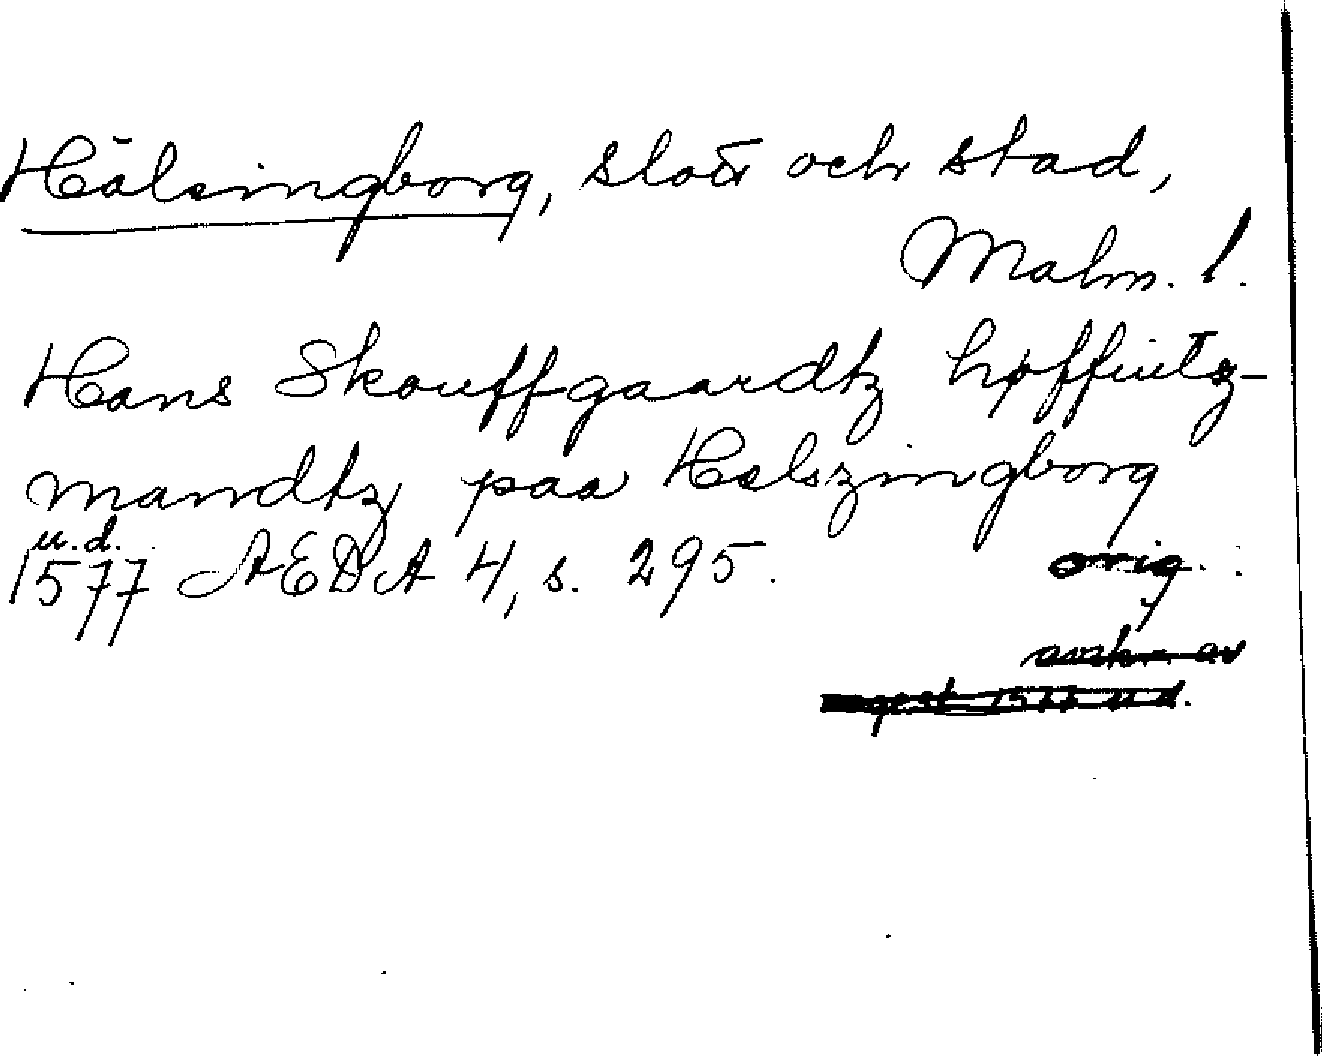 Hälsingborg, slott och stad,
Malm. l.
Hans Skouffgaardtz høffuitz-
mandtz paa Helszingborg
u.d.
1577 AEDA 4, s. 295. orig.
avskr. av
regest 1577 u.d.